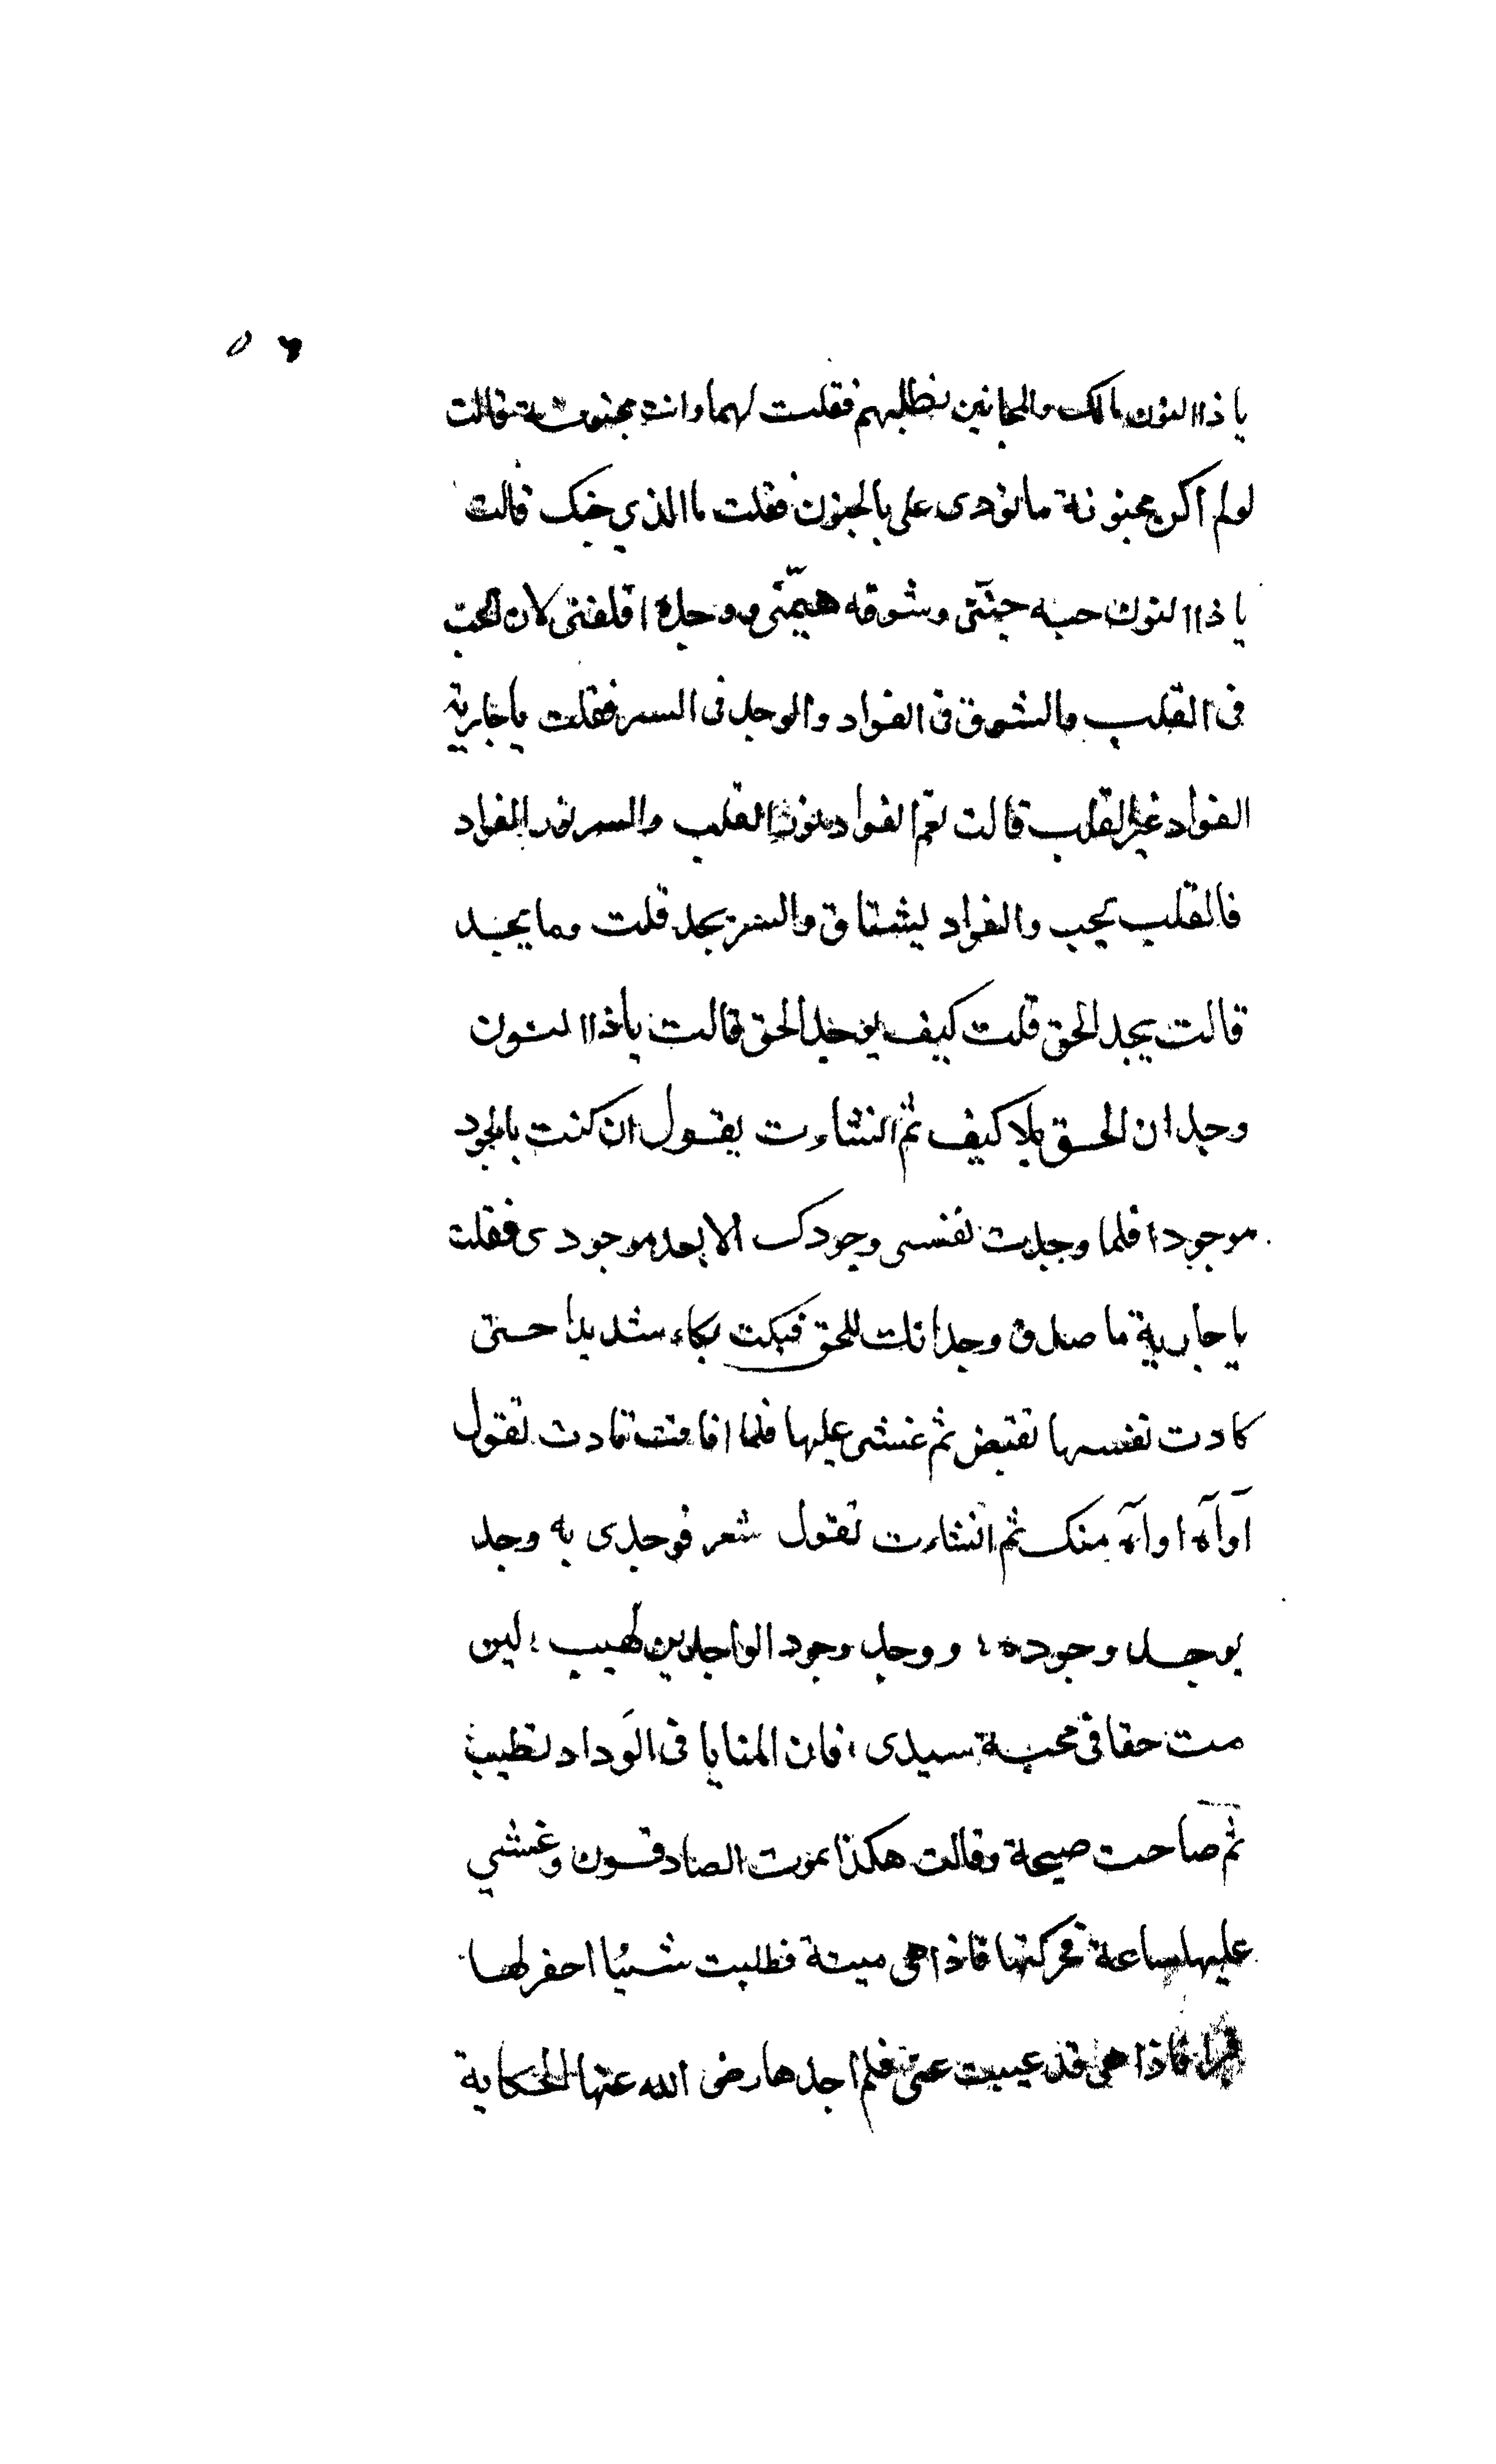 يا ذا النون مالك والمجانين تطلبهم فقلت لها وانت مجنونة قالت
لولم اكن مجنونة ما نودى على بالجنون فقلت ما الذي جننك قالت
يا ذا النون حبه جننّى وشوقه هيّمنى ووجده اقلقنى لان الحب
فى القلب والشوق فى الفواد والوجد فى السر فقلت يا جارية
الفواد غير القلب قالت نعم الفواد نور القلب والسر نور الفواد
فالقلب يحب والفواد يشتاق والسر يجد قلت وما يجد
قالت يجد الحق قلت كيف يوجد الحق قالت يا ذا النون
وجدان الحق بلا كيف ثم انشاءت يقول ان كنت بالجود
موجودا فلما وجدت نفسى وجودك الا بعد موجودى فقلت
يا جارية ما صدق وجدانك للحق فبكت بكاء شديدا حتى
كادت نفسها تقبض ثم غشى عليها فلما افاقت نادت تقول
آوآه اوآه منك ثم انشاءت تقول شعر فوجدى به وجد
بوجد وجوده ووجد وجود الواجدين لهيب لين
مت حقا فى محبة سيدى فان المنايا فى الوداد تطيب
ثم صاحت صيحة وقالت هكذا يموت الصادقون وغشي
عليها ساعة فحركتها فاذا هى ميتة فطلبت شيئا احفر لها
فاذا هى قد غيبت عنى فلم اجدها رضى الله عنها الحكاية